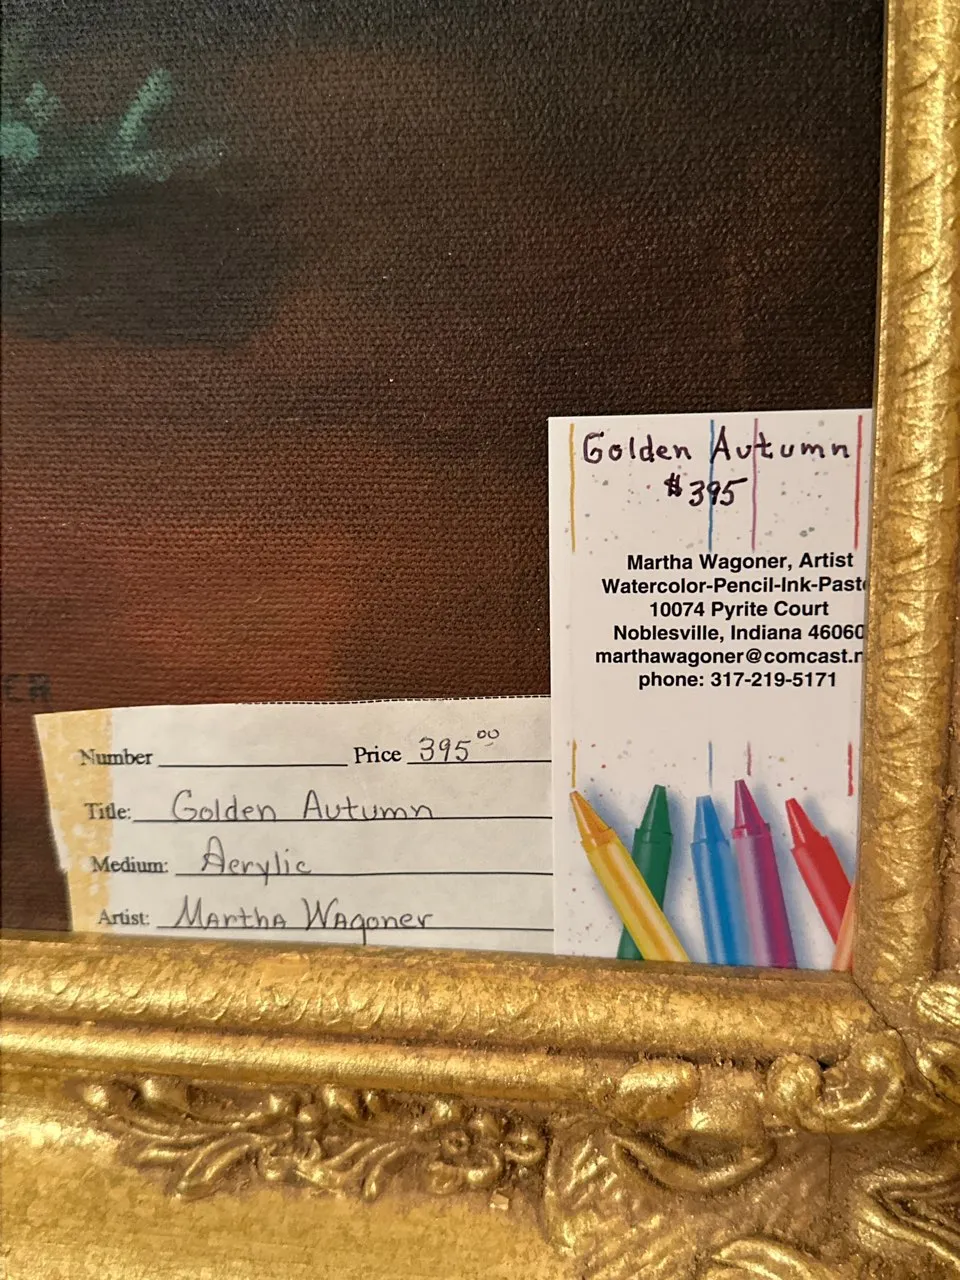 Golden Autumn
$395
Martha Wagoner, Artist
Watercolor-Pencil-Ink-Paste
10074 Pyrite Court
Noblesville, Indiana 46060
marthawagoner@comcast.n
phone: 317-219-5171
ER
Number Price 395⁰⁰
Title: Golden Autumn
Medium: Acrylic
Artist: Martha Wagoner